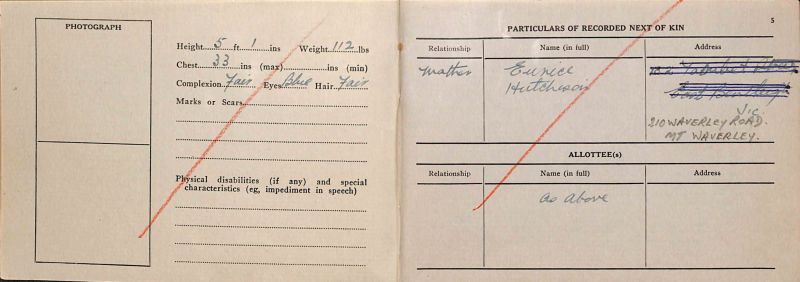 PHOTOGRAPH
Height.....5.....ft...1.....ins Weight..112..lbs
Chest...33....ins (max)...............ins (min)
Complexion..Fair... Eyes..Blue.. Hair..Fair..
Marks or Scars
Physical disabilities (if any) and special
characteristics (eg, impediment in speech)
5
PARTICULARS OF RECORDED NEXT OF KIN
Relationship Name (in full) Address
Mother Eunice
Hutcheson
East Bentleigh
Vic.
210 WAVERLEY ROAD.
MT WAVERLEY.
ALLOTTEE(s)
Relationship Name (in full) Address
as above